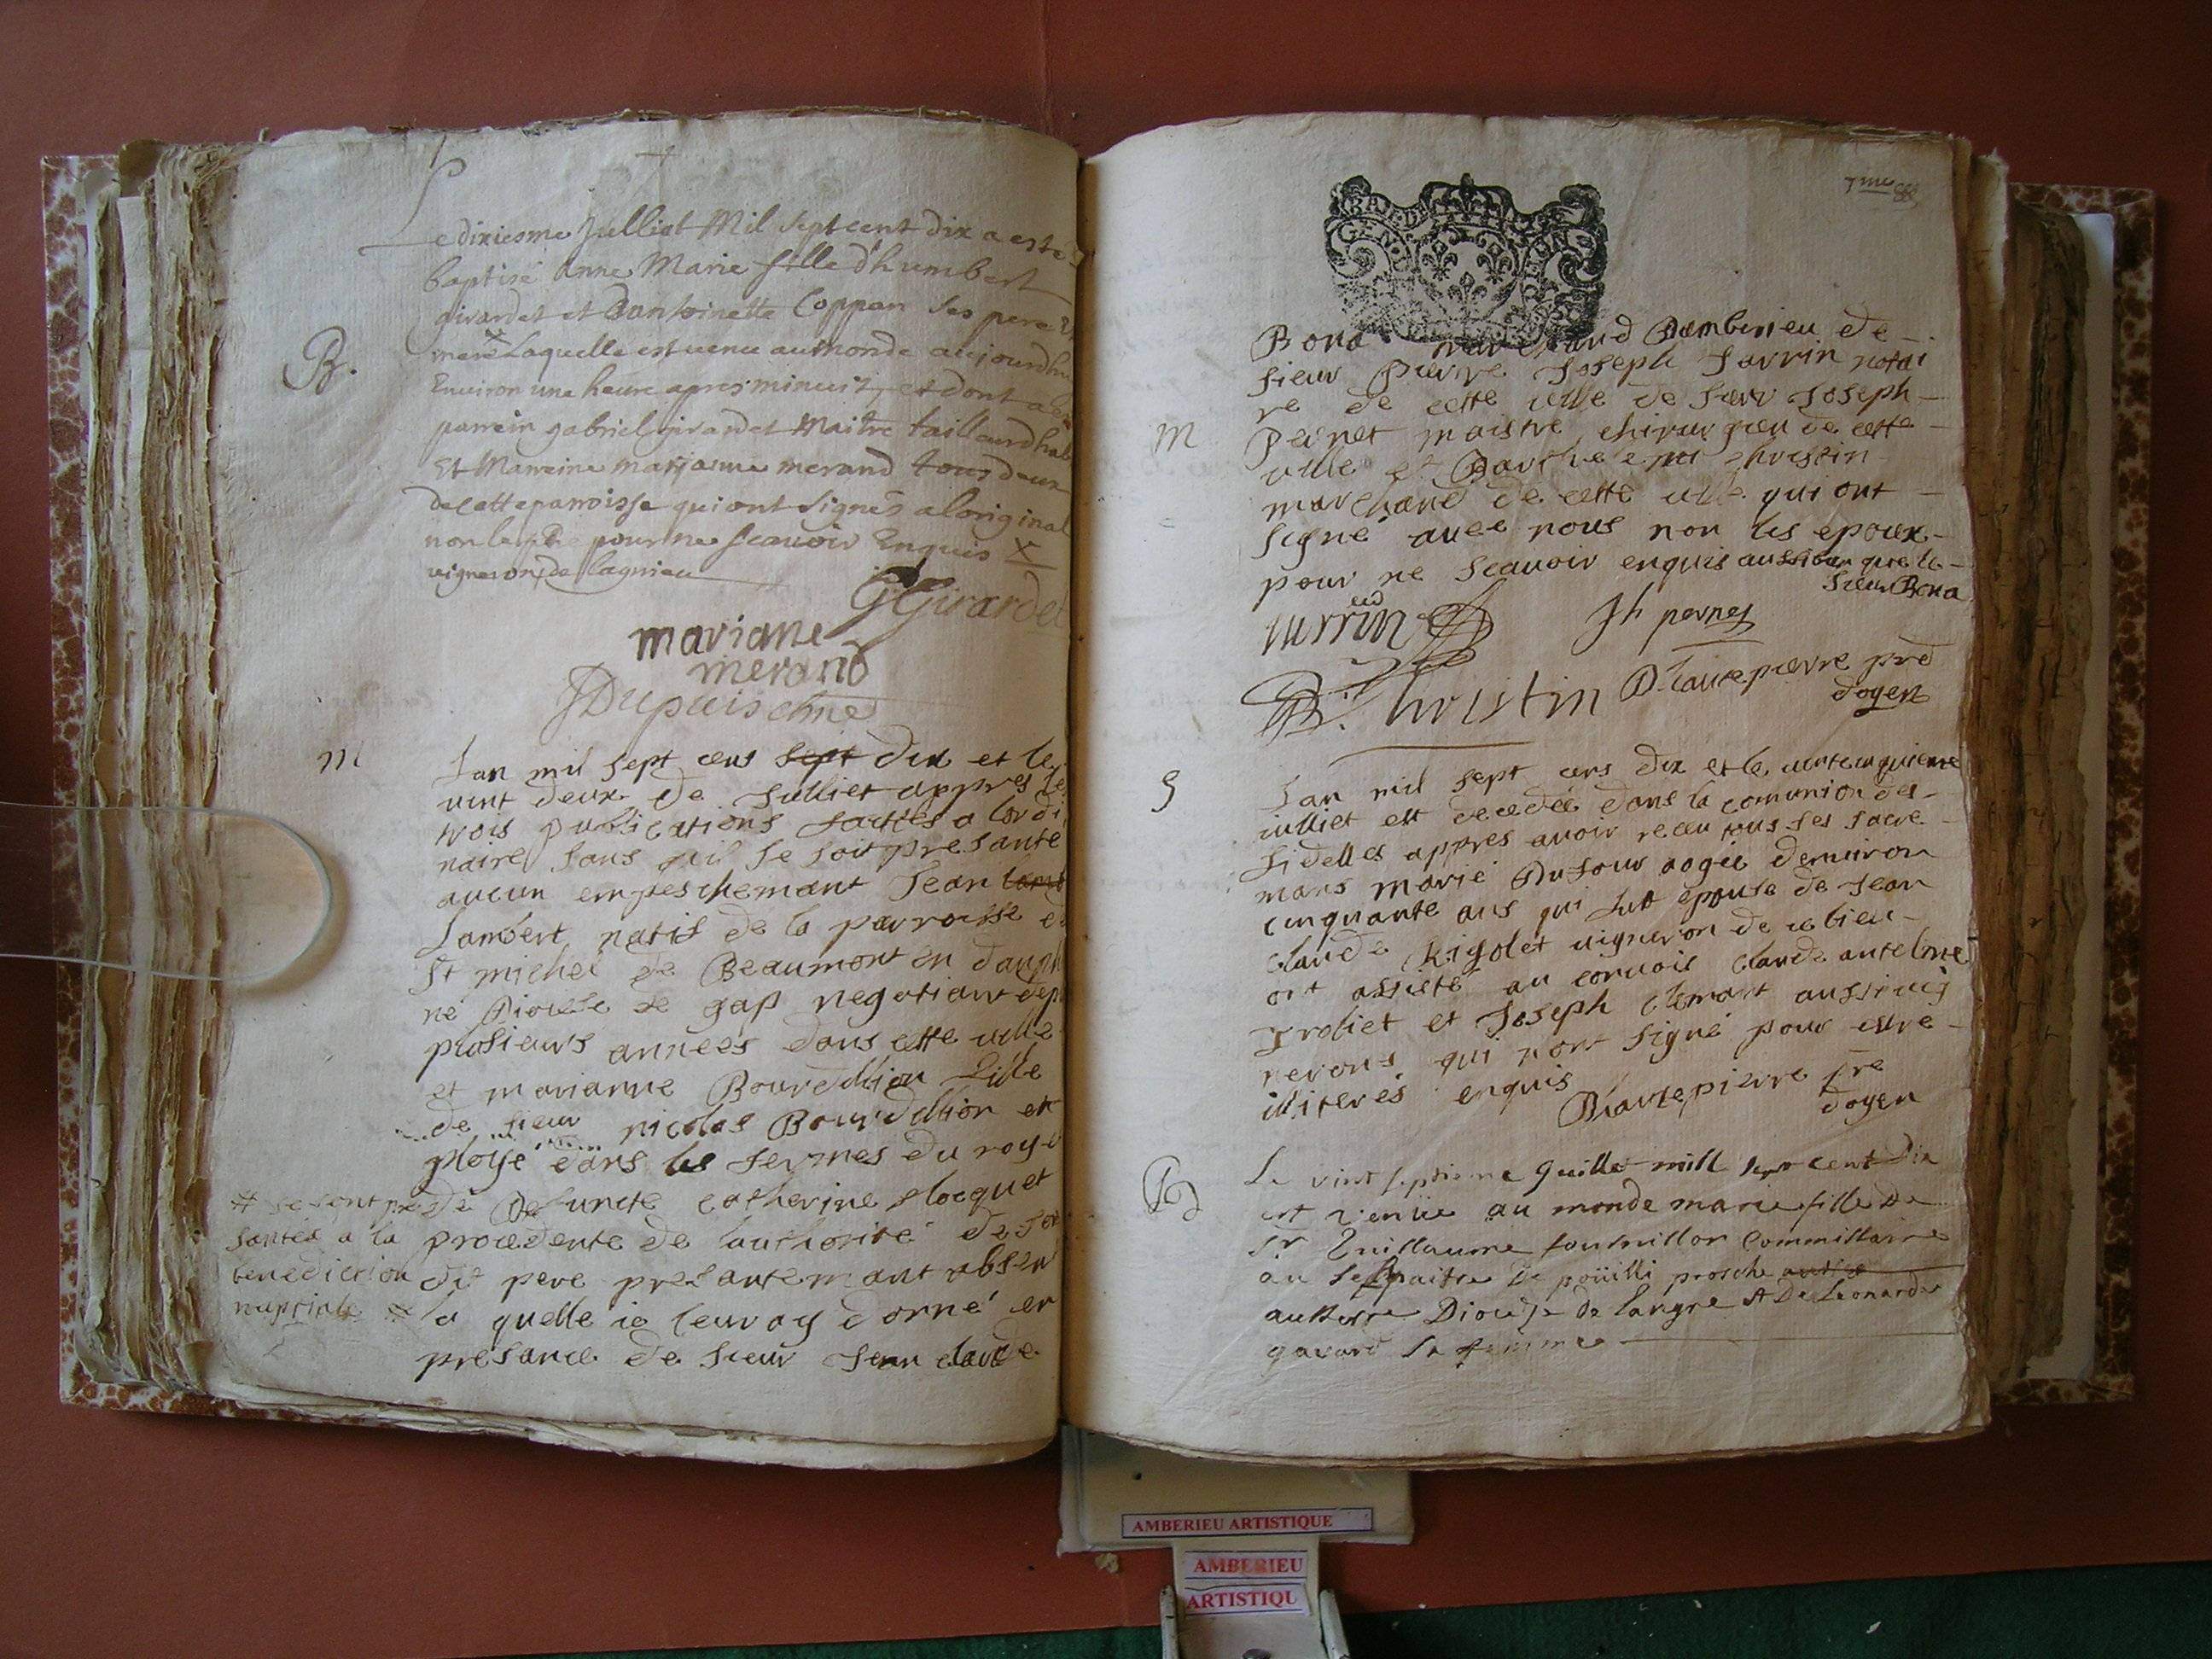 Le dixiesme Julliet Mil sept cent dix a esté
baptisé Anne Marie fille d'humbert
girardet et Dantoinette Coppan ses pere &
mere X Laquelle est venu au monde aujourdhu
Environ une heure apres minuit, et dont a esté
parrein gabriel girardet Maitre tailleur dhab
Et Marraine marianne merand tous deux
de cette parroisse qui ont signés a loriginal
non le pere pour ne scavoir Enquis X
vigneron de lagnieu
B.
GGirardet
mariane
merand
JDupuis
M
Lan mil sept cens sept dix et le
vint deux de Julliet appres les
trois publications faittes a lordi
naire sans quil se soit presanté
aucun empeschemant Jean lamb
Lambert natif de la parroisse de
St michel de Beaumont en dauph
né Diocese de gap negotiant depu
plusieurs années dans cette ville
et marianne Bourdillion fille
de sieur nicolas Bourdillion em
ployé dans les fermes du roy et
de defuncte catherine plocquet
procedente de lauthorité de son
dit pere presantemant absen
la quelle ie leur ay donné en
presance de sieur Jean claude
# se sont pre
santés a la
benediction
nuptiale #
7me
GEN
Bona marchand Damberieu de
sieur pierre Joseph Jarrin notai
re de cette ville de sieur Joseph
M
Pernet maistre chirurgien de cette
ville et Barthelemi christin
marchand de cette ville qui ont
signé avec nous non les epoux
pour ne scavoir enquis aussi bien que le
sieur Bona
Jarrin
Jh pernet
B. Christin
Dhautepierre pre
doyen
S
Lan mil sept cens dix et le vintcinquieme
iulliet est decedée dans la comunion des
fidelles appres avoir receu tous ses sacre
mans marie Dufour aagée denviron
cinquante ans qui fut epouse de Jean
claude Rigolet vigneron de ce lieu
ont assisté au convois claude antelme
Troliet et Joseph clemant aussi vig
nerons qui nont signé pour estre
illiterés enquis
Dhautepierre pre
doyen
B
Le vint septieme Juillet mill sept cent dix
est venüe au monde marie fille de
Sr Guillaume fournillon Commissaire
au de poüilli prosche
auxerre Diocese de langre & De Leonarde
gavard sa femme
AMBERIEU ARTISTIQUE
AMBERIEU
ARTISTIQU